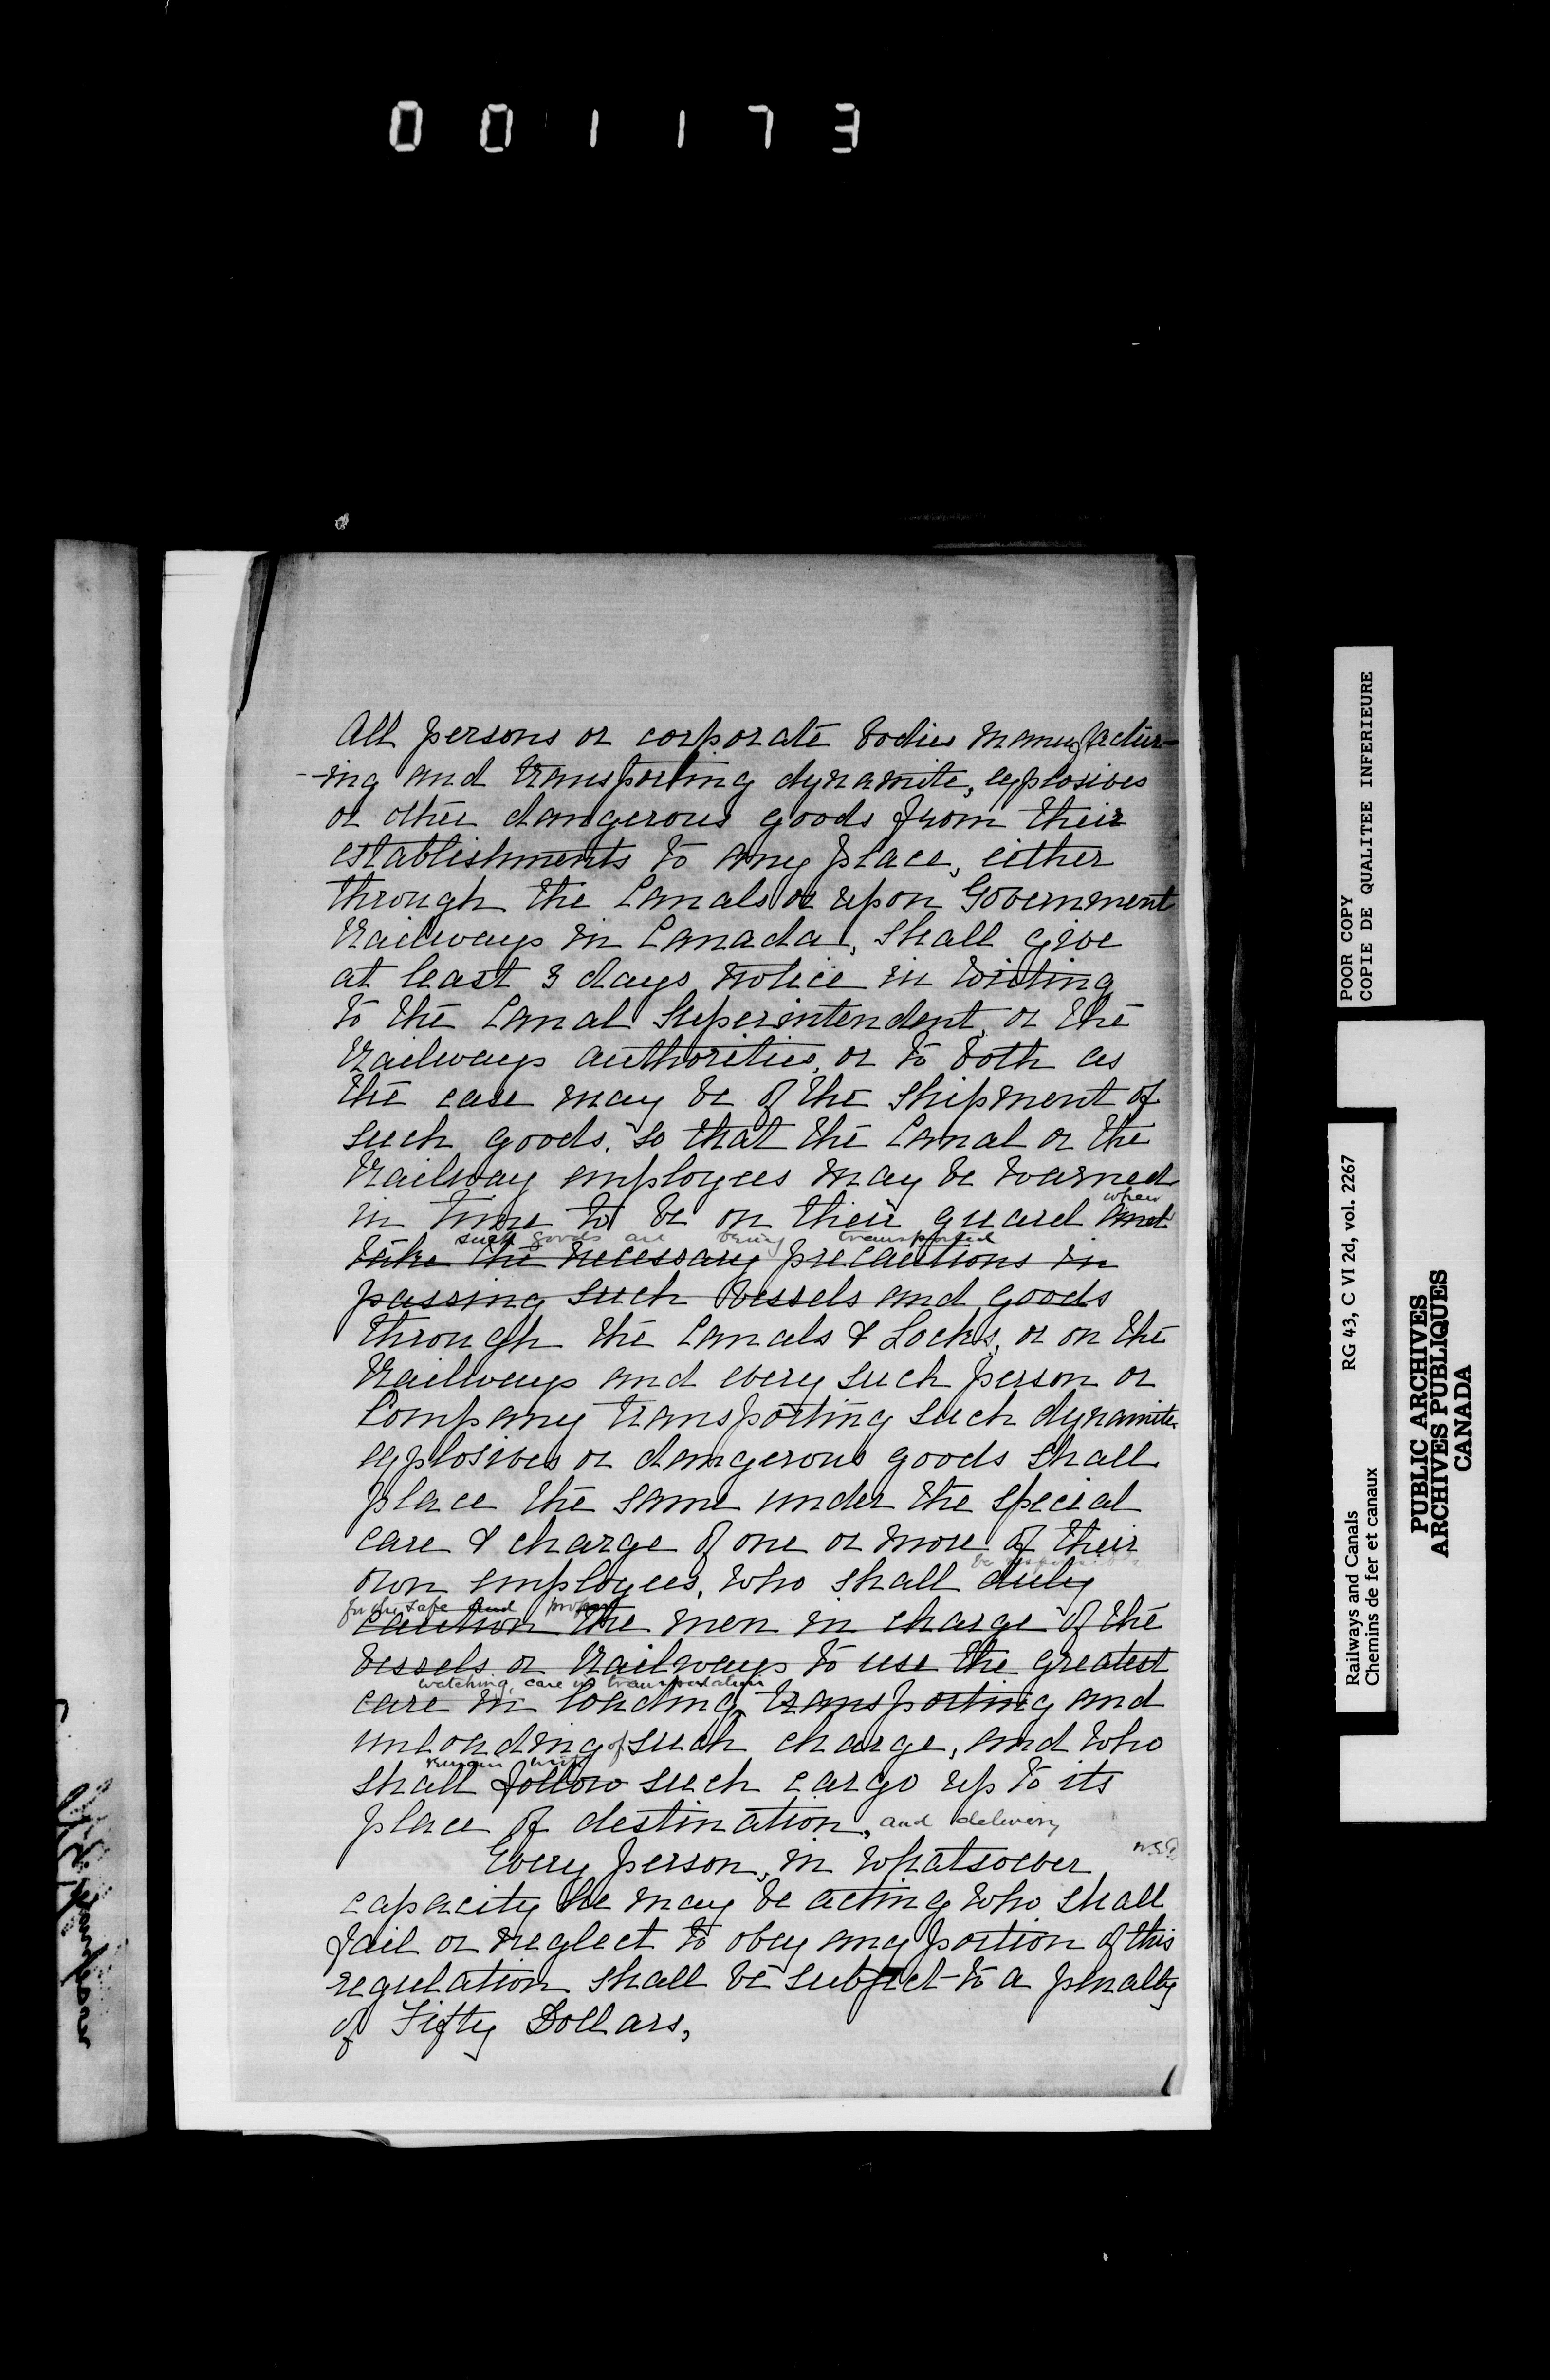 001173
All persons or corporate bodies manufactur-
-ing and transporting dynamite, explosives
or other dangerous goods from their
establishments to any place, either
through the Canals or upon Government
Railways in Canada, shall give
at least 3 days notice in writing
to the Canal Superintendent, or the
Railways authorities, or to both as
the case may be of the shipment of
such goods, so that the Canal or the
Railway employees may be warned
when
in time to be on their guard and
such goods are being transported
take the necessary precautions in
passing such vessels and goods
through the Canals & Locks, or on the
Railways and every such person or
Company transporting such dynamite
explosives or dangerous goods shall
place the same under the special
care & charge of one or more of their
be responsible
own employees, who shall duly
for the safe and proper
caution the men in charge of the
vessels or Railways to use the greatest
watching, care in transportation
care in loading, transporting and
unloading of such charge, and who
remain with
shall follow such cargo up to its
place of destination, and delivery
Every person, in whatsoever
capacity he may be acting who shall
fail or neglect to obey any portion of this
regulation shall be subject to a penalty
of Fifty Dollars,
POOR COPY
COPIE DE QUALITEE INFERIEURE
Railways and Canals RG 43, C VI 2d, vol. 2267
Chemins de fer et canaux
PUBLIC ARCHIVES
ARCHIVES PUBLIQUES
CANADA